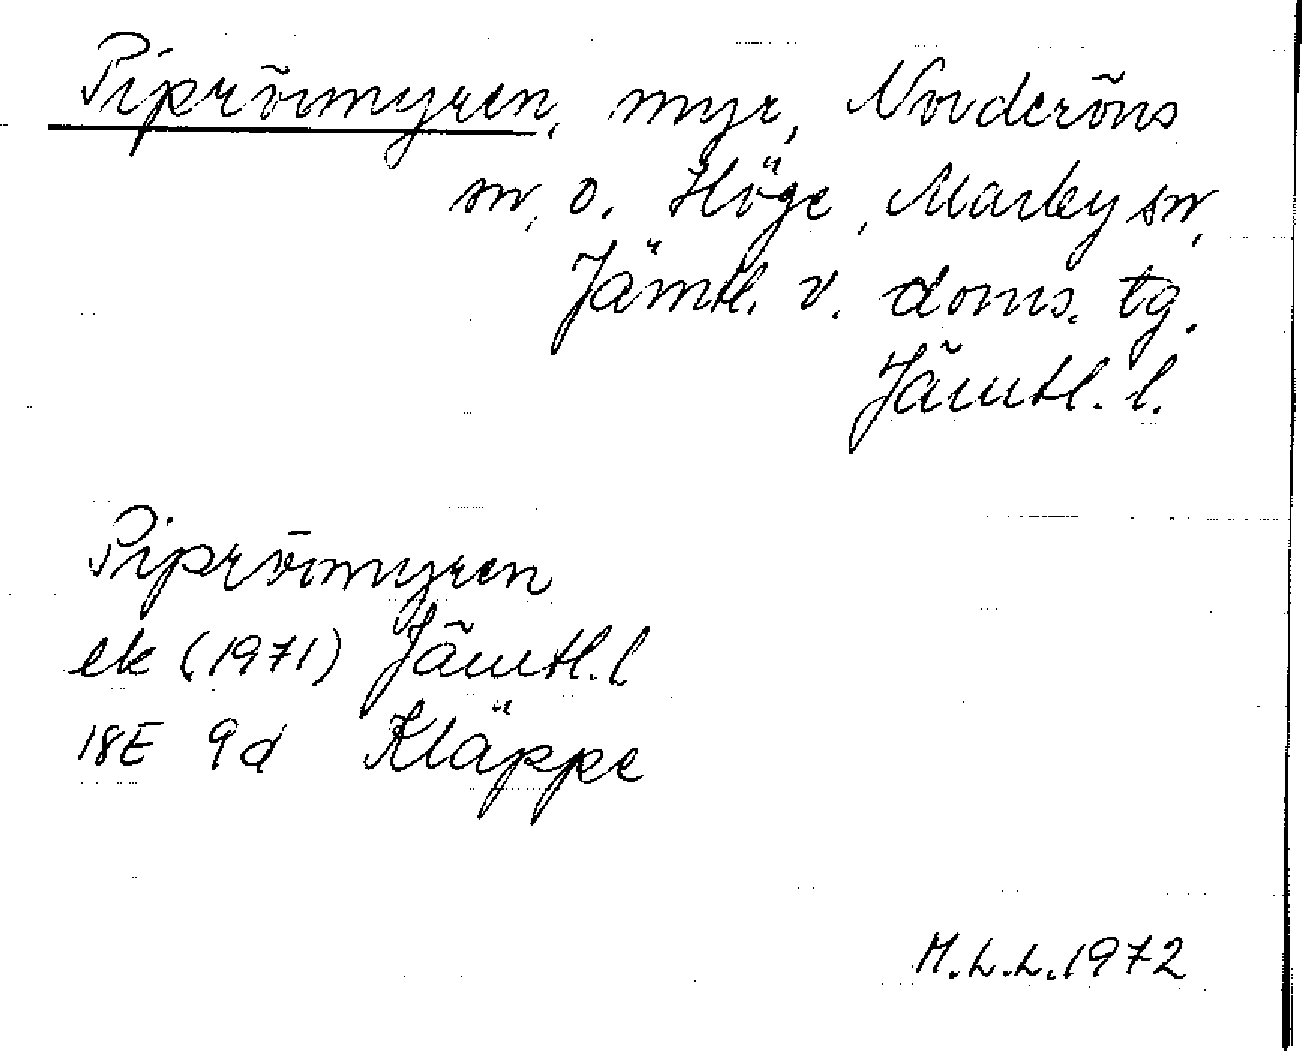 Piprörmyren, myr, Norderöns
sn, o. Höge, Marby sn,
Jämtl. v. doms. tg.
Jämtl. l.
Piprörmyren
ek (1971) Jämtl. l
18E 9d Kläppe
M.L.L. 1972